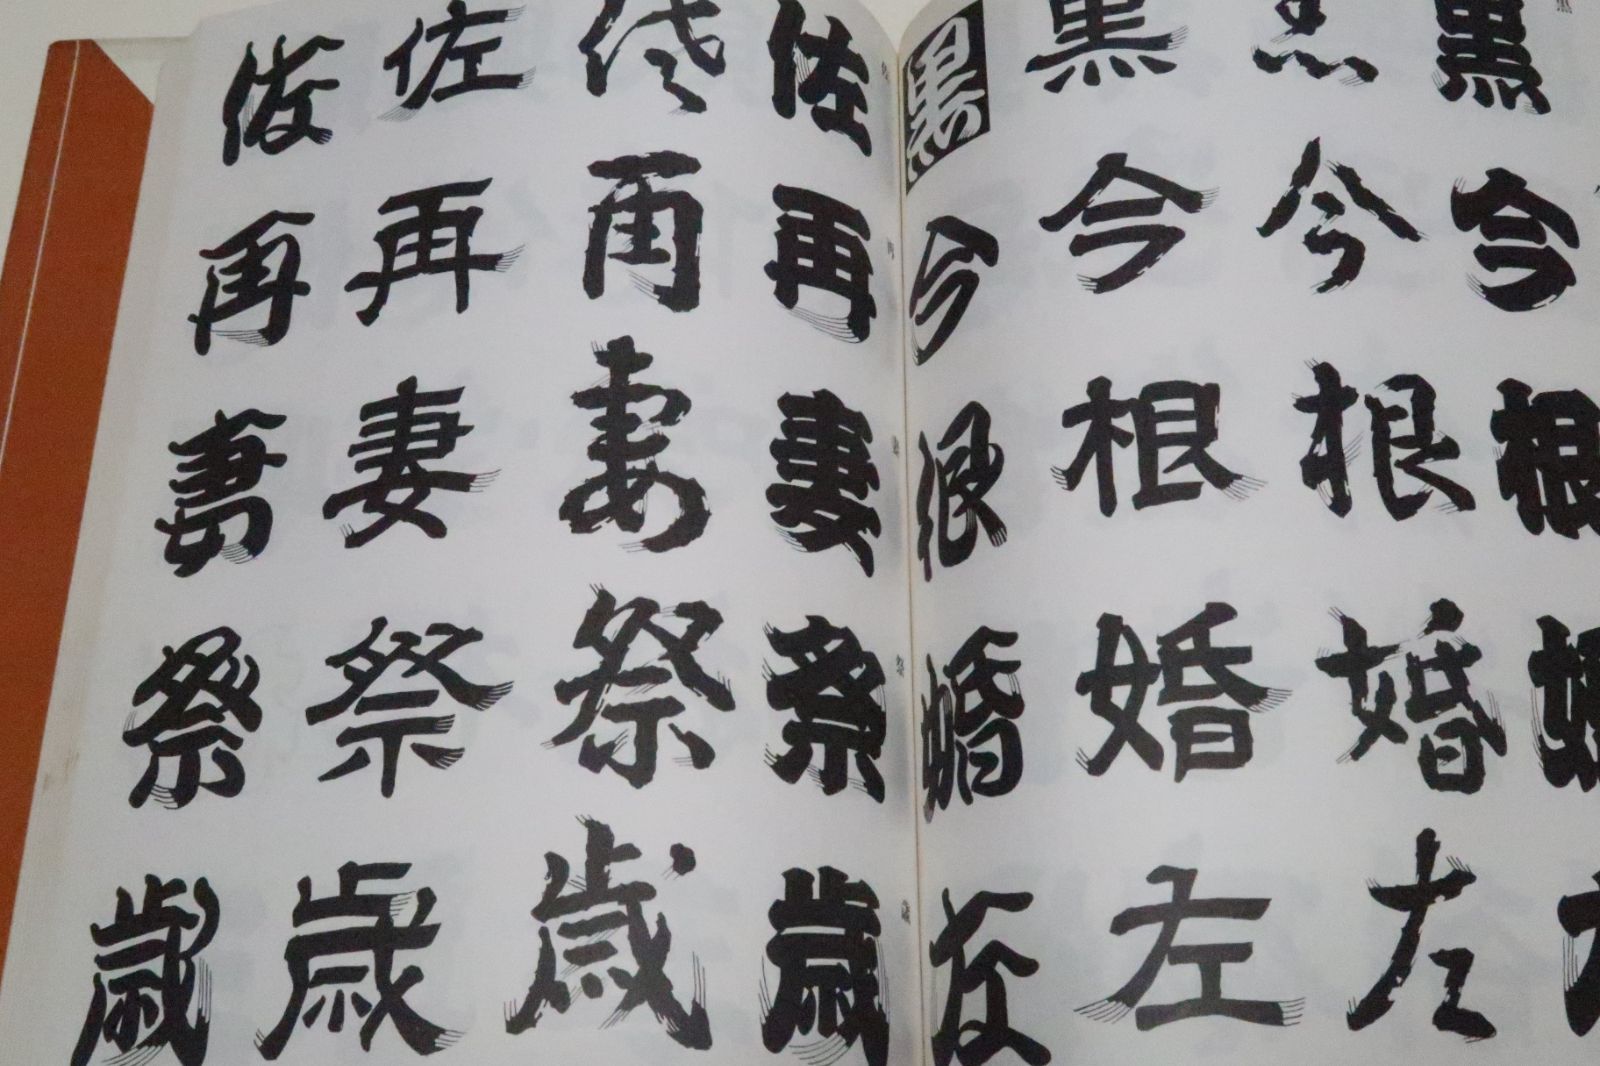 佐 佐 佐 佐 黒 黒 黒 黒
再 再 再 再 今 今 今 今
妻 妻 妻 妻 根 根 根 根
祭 祭 祭 祭 婚 婚 婚 婚
歳 歳 歳 歳 左 左 左